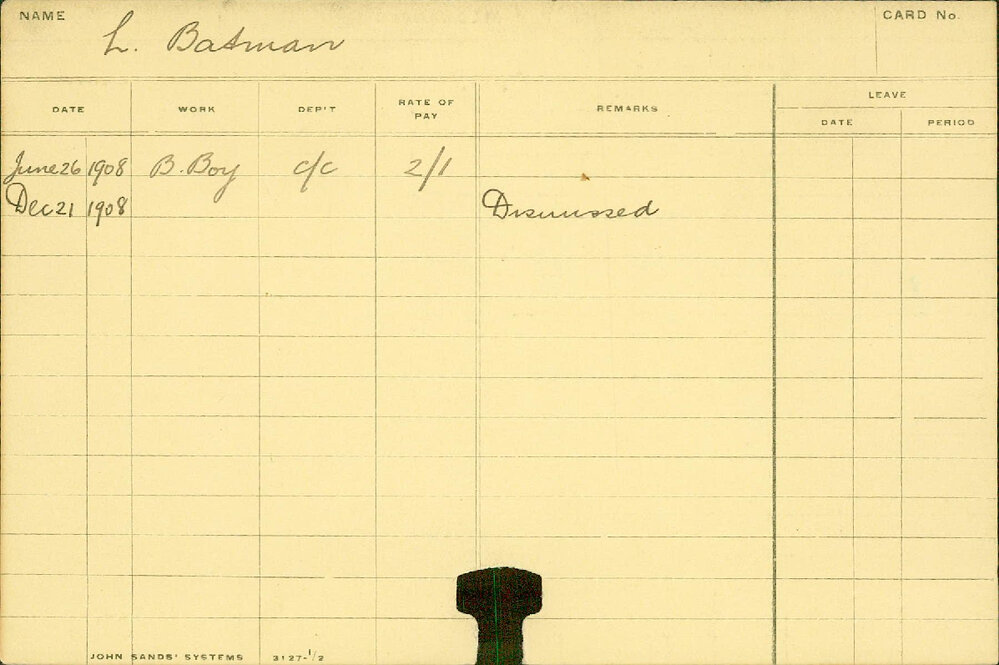 NAME L. Batman CARD No.
LEAVE
DATE WORK DEP'T RATE OF PAY REMARKS DATE PERIOD
June 26 1908 B. Boy c/c 2/1
Dec 21 1908 Dismissed
JOHN SANDS' SYSTEMS 3127-1/2